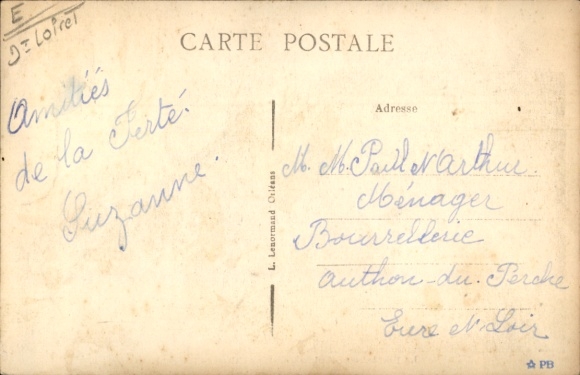 E
Dt Loiret
CARTE POSTALE
Amitiés
de la Ferté.
Suzanne.
L. Lenormand Orléans
Adresse
M. M. Paul et Arthur
Ménager
Bourrellerie
Authon-du-Perche
Eure et Loir
PB